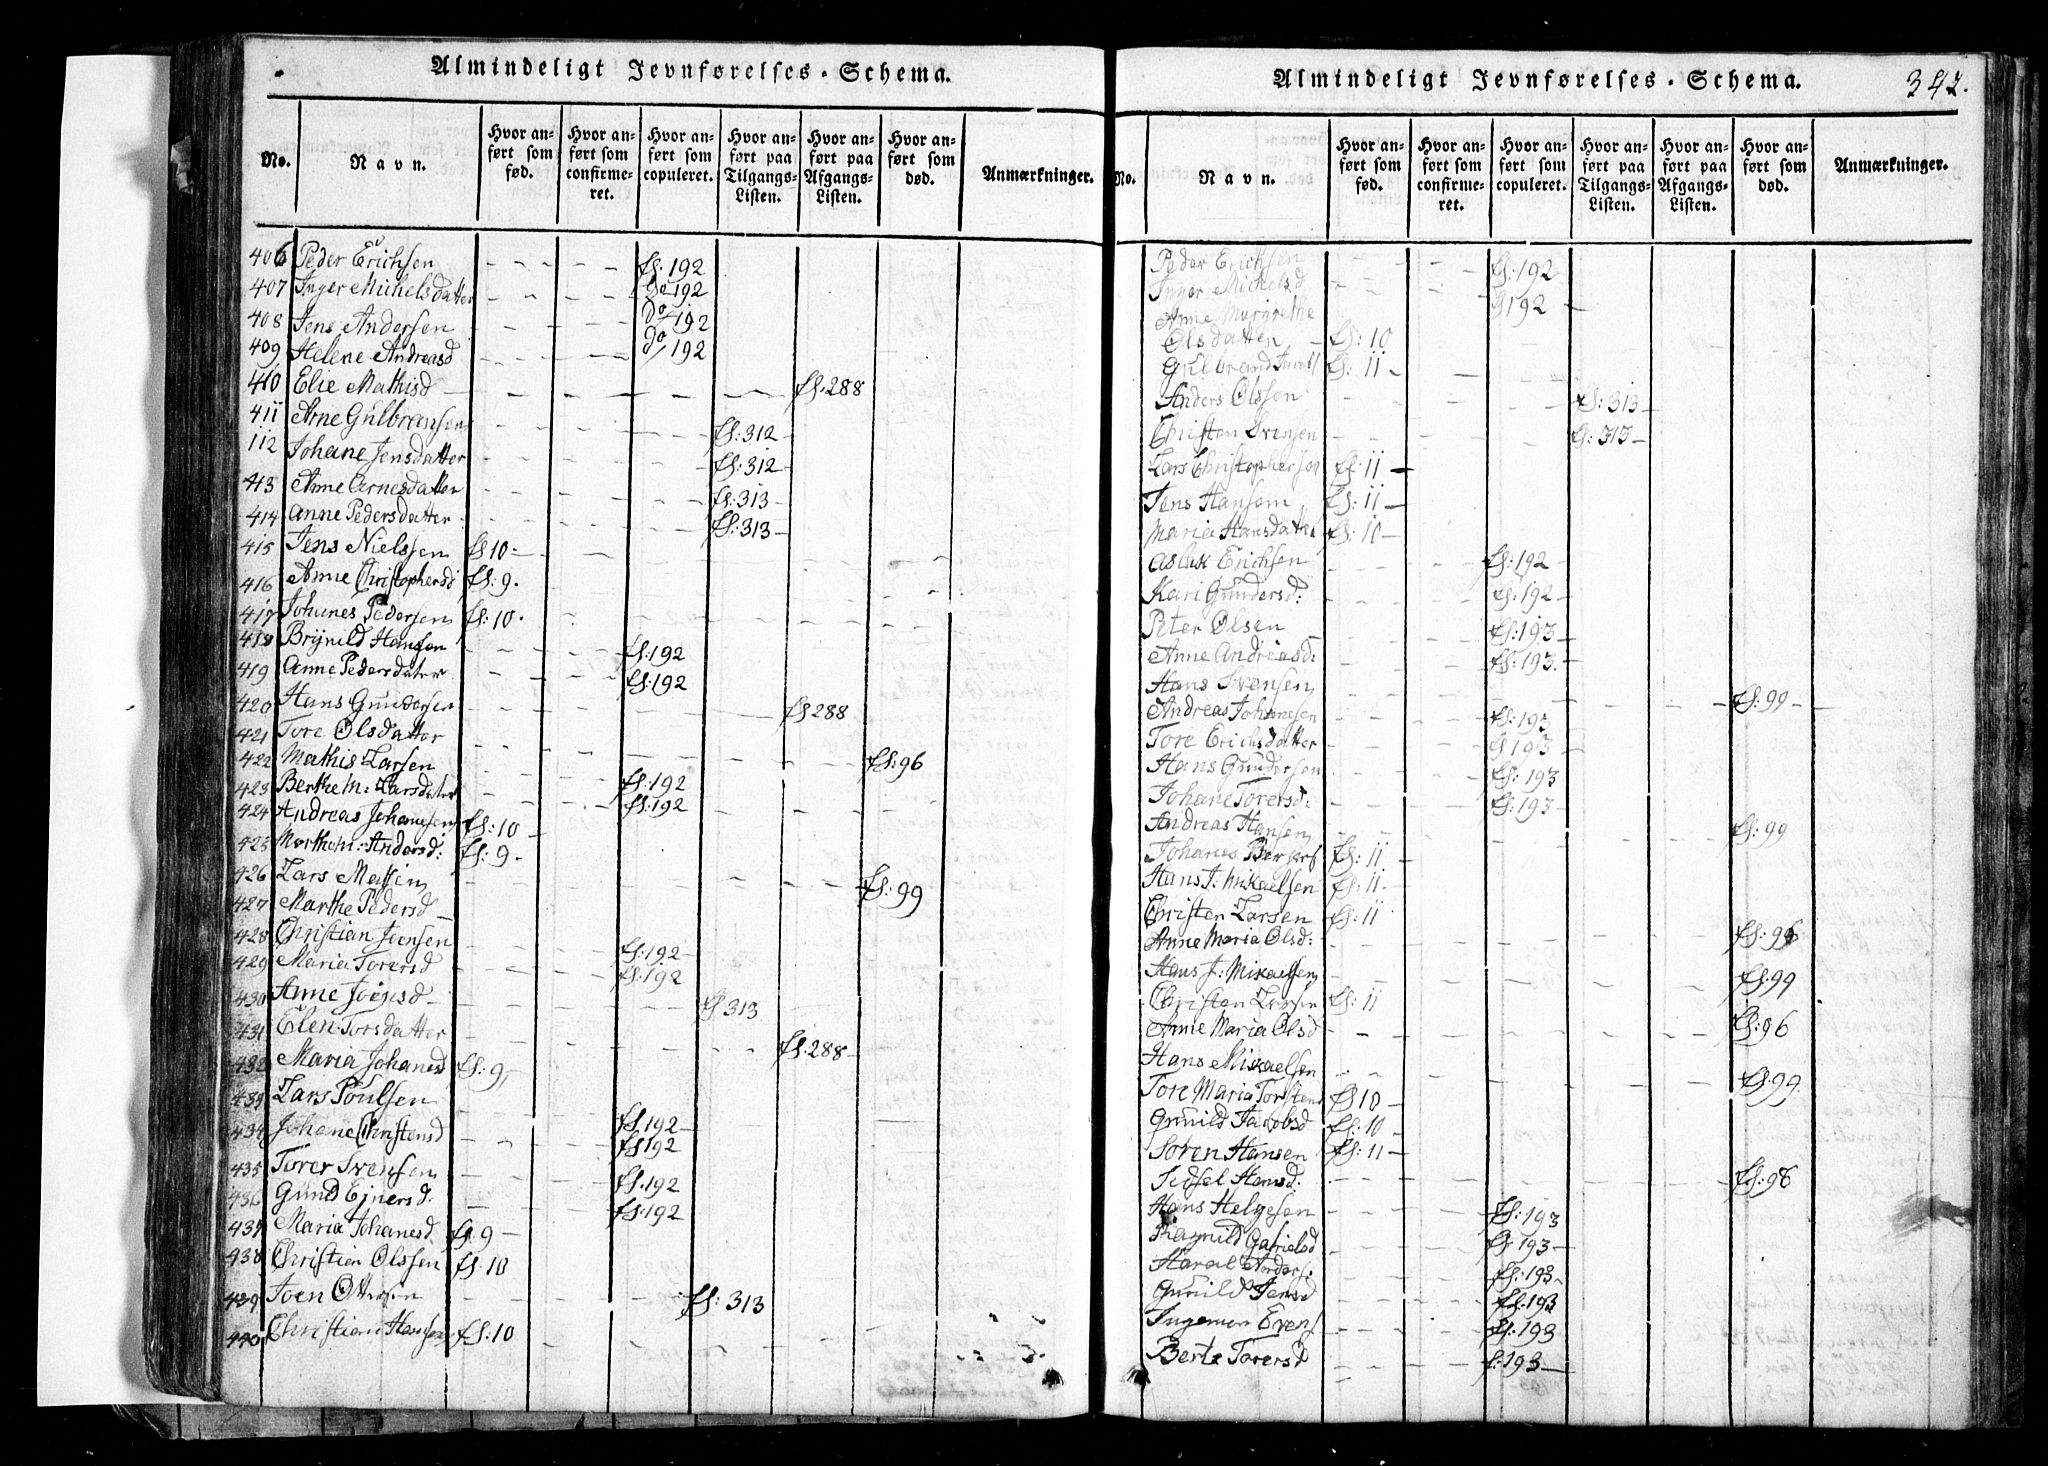 Almindeligt Jevnførelses-Schema.
No. Navn. Hvor anført som fød. Hvor anført som confirmeret. Hvor anført som copuleret. Hvor anført paa Tilgangs-Listen. Hvor anført paa Afgangs-Listen. Hvor anført som død. Anmærkninger.
406 Peder Erichsen fl. 192
407 Inger Michelsdatter do 192
408 Jens Andersen do 192
409 Helene Andreasd do 192
410 Elie Mathisd fl. 288
411 Arne Gulbransen fl: 312
112 Johane Jensdatter fl: 312
413 Anne Arnesdatter fl: 313
414 Anne Pedersdatter fl: 313
415 Jens Nielssen fl 10
416 Anne Christophersd fl: 9.
417 Johanes Pedersen fl: 10.
418 Brynild Hansen fl: 192
419 Anne Pedersdater fl: 192
420 Hans Gundersen fl 288
421 Tore Olsdatter
422 Mathis Larsen fl: 96
423 Berthe M: Larsdater fl: 192
424 Andreas Johanesen fl: 192 fl: 10
425 Anders d: fl: 9
426 Lars
427 Marthe Pedersd fl: 99
428 Christian Joensen fl: 192
429 Maria Torersd fl: 192
430 Anne fl 313
431 Elen Torsdatter fl: 288
432 Maria Johanesd fl: 9
433 Lars Poulsen fl. 192
434 Johane Christensd fl 192
435 Torer Svensen fl. 192
436 Gund Ejnersd: fl: 192
437 Maria Johanesd fl. 9
438 Christian Olssen fl. 10
439 Joen Ottersen fl: 313
440 Christian Hansen fl: 10
Almindeligt Jevnførelses-Schema. 342.
No. Navn. Hvor anført som fød. Hvor anført som confirmeret. Hvor anført som copuleret. Hvor anført paa Tilgangs-Listen. Hvor anført paa Afgangs-Listen. Hvor anført som død. Anmærkninger.
Peder Erichsen fl: 192
Inger Michelsd 192
Anne Margrethe
Olsdatter fl: 10
Gulbrand fl: 11
Anders Olssen fl: 313
Christen Svensen fl: 313
Lars Christophersen fl: 11
Jens Hansen fl: 11
Maria Hansdatter fl: 10
Aslak Erichsen fl: 192
Kari Gundersd: fl: 192
Peter Olsen fl: 193
Anne Andreasd: fl: 193.
Hans Svensen fl: 99
Andreas Johannesen fl: 193
Tore Erichsdatter fl 193
Hans Gundersen fl: 193
Johane Torersd: fl: 193
Andreas Hansen fl: 99
Johanes fl: 11
Hans J: Mikaelsen fl: 11
Christen Larsen fl: 11
Anne Maria Olsd: fl: 96
Hans J: Mikaelsen fl: 99
Christen Larsen fl: 11
Anne Maria Olsd fl: 96
Hans Mikaelsen fl: 99
Tore Maria fl 10
Gunild Jacobsd fl: 10
Soren Hansen fl: 11
Hansd: fl: 98
Hans Helgesen fl: 193
Ragnild Gabrielsd fl: 193
Anders. fl: 193
Gunild Jensd fl: 193
Ingeman Evens fl: 193
Berte Torersd f: 193